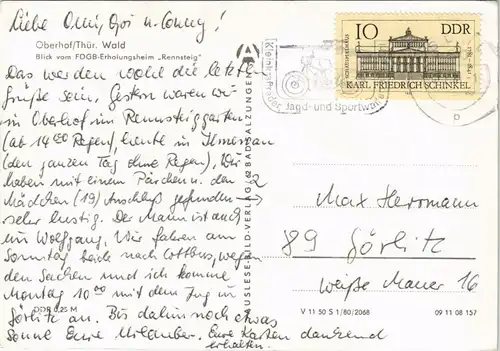 Liebe Omi, Opi u. Conny!
Oberhof/Thür. Wald
Blick vom FDGB-Erholungsheim „Rennsteig"
Das werden wohl die letzten
Grüße sein. Gestern waren wir
in Oberhof im Rennsteiggarten
(ab 14⁰⁰ Regen), heute in Ilmenau
(den ganzen Tag ohne Regen). Wir
haben mit einem Pärchen u. den 2
Mädchen (19) Anschluß gefunden
sehr lustig. Der Mann ist auch
ein Wolfgang. Wir fahren am
Sonntag beide nach Cottbus, wegen
den Sachen und ich komme
Montag 10⁰⁰ mit dem Zug in
Görlitz an. Bis dahin noch etwas
Sonne Eure Urlauber. Eure Karten dankend
erhalten.
DDR 0,25 M
AUSLESE-BILD-VERLAG 62 BAD SALZUNGEN
10 DDR
SCHAUSPIELHAUS
1781–1841
KARL FRIEDRICH SCHINKEL
Jagd- und Sportwaffen
b
Max Herrmann
89 Görlitz
Weiße Mauer 16
V 11 50 S 1/80/2068
09 11 08 157